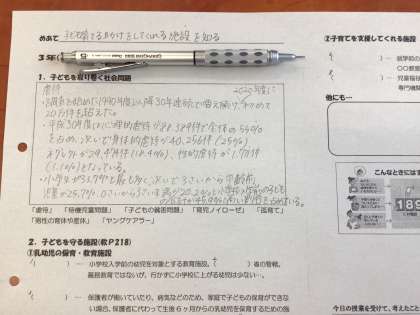 めあて 子ども育てる助けをしてくれる施設を知る
3年(
1. 子どもを取り巻く社会問題
虐待 2020年度に
・調査を始めた1990年度以降30年連続で増え続け、初めて
20万件を超えた。
・平成30年度は心理的虐待が88,389件で全体の55%
を占め、次いで身体的虐待が40,256件(25%)
ネグレクトが29,474件(18.4%)、性的虐待が1,7件
(1.1%)となっている。
・小学生が33.7%と最も多く、次いで3さいから
児童が25.7%、0さいから3さい未満が20.2%
「虐待」 「待機児童問題」 「子どもの貧困問題」 「育児ノイローゼ」 「孤育て」
「男性の育休や産休」 「ヤングケアラー」
2. 子どもを守る施設(教P218)
①乳幼児の保育・教育施設
( )― 小学校入学前の幼児を対象とする教育施設。( )省の管轄。
義務教育ではないが、行かずに小学校に上がる幼児は少ない…。
( )― 保護者が働いていたり、病気などのため、家庭で子どもの保育ができな
い場合、保護者に代わって生後6ヶ月からの乳幼児を保育するための施
②子育てを支援してくれる施設
( )― 就学前の
○○教
( )― 児童福祉
専門機関
他にも…
こんなときには
189
今日の授業を受けて、考えた